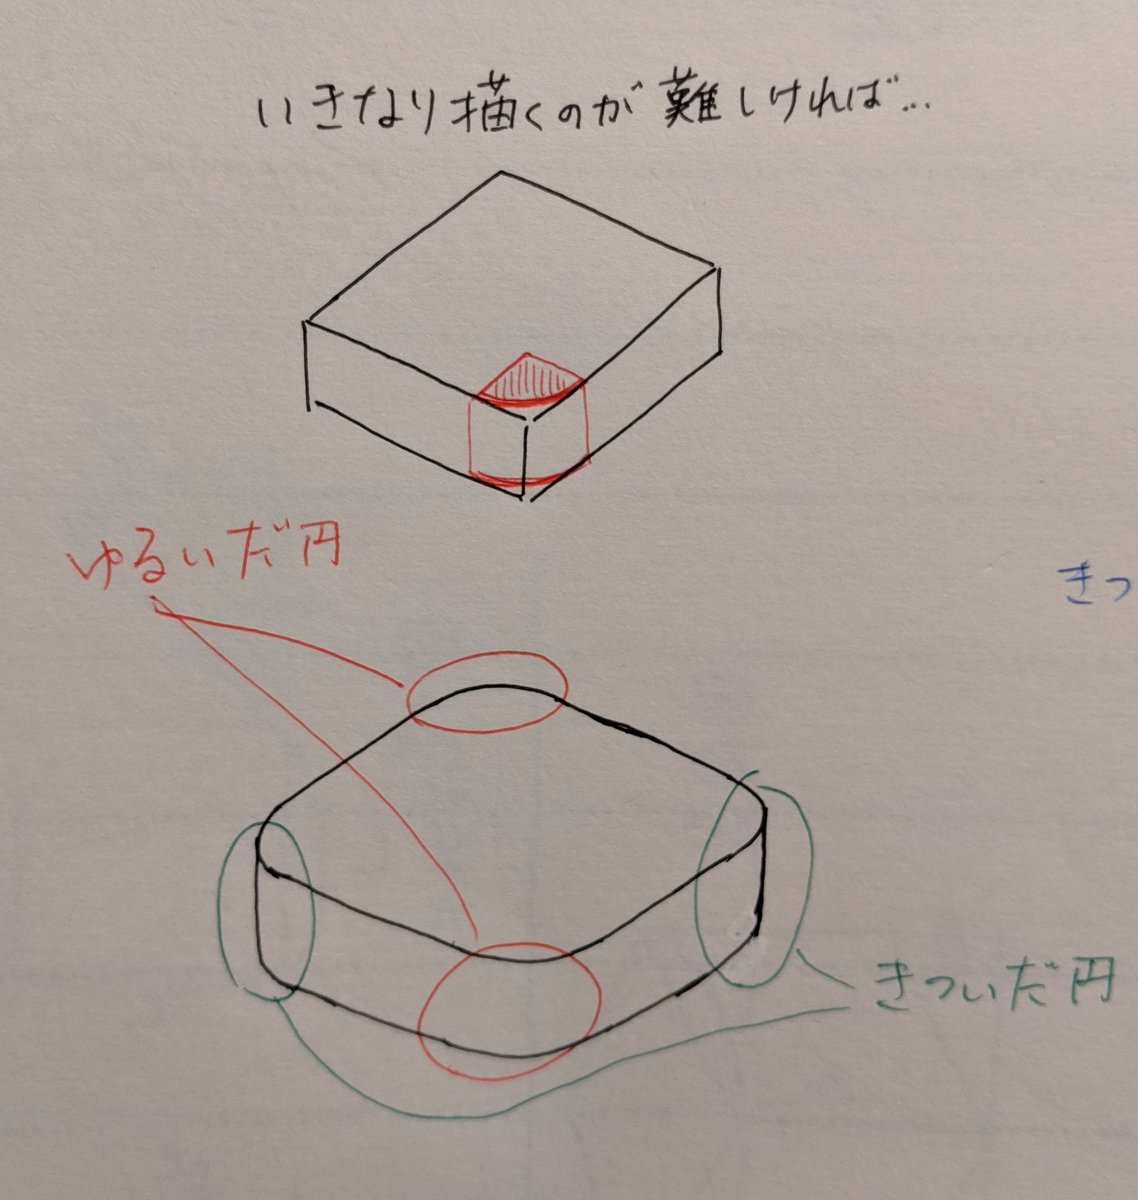 いきなり描くのが難しければ…
ゆるいだ円
きつ
きついだ円